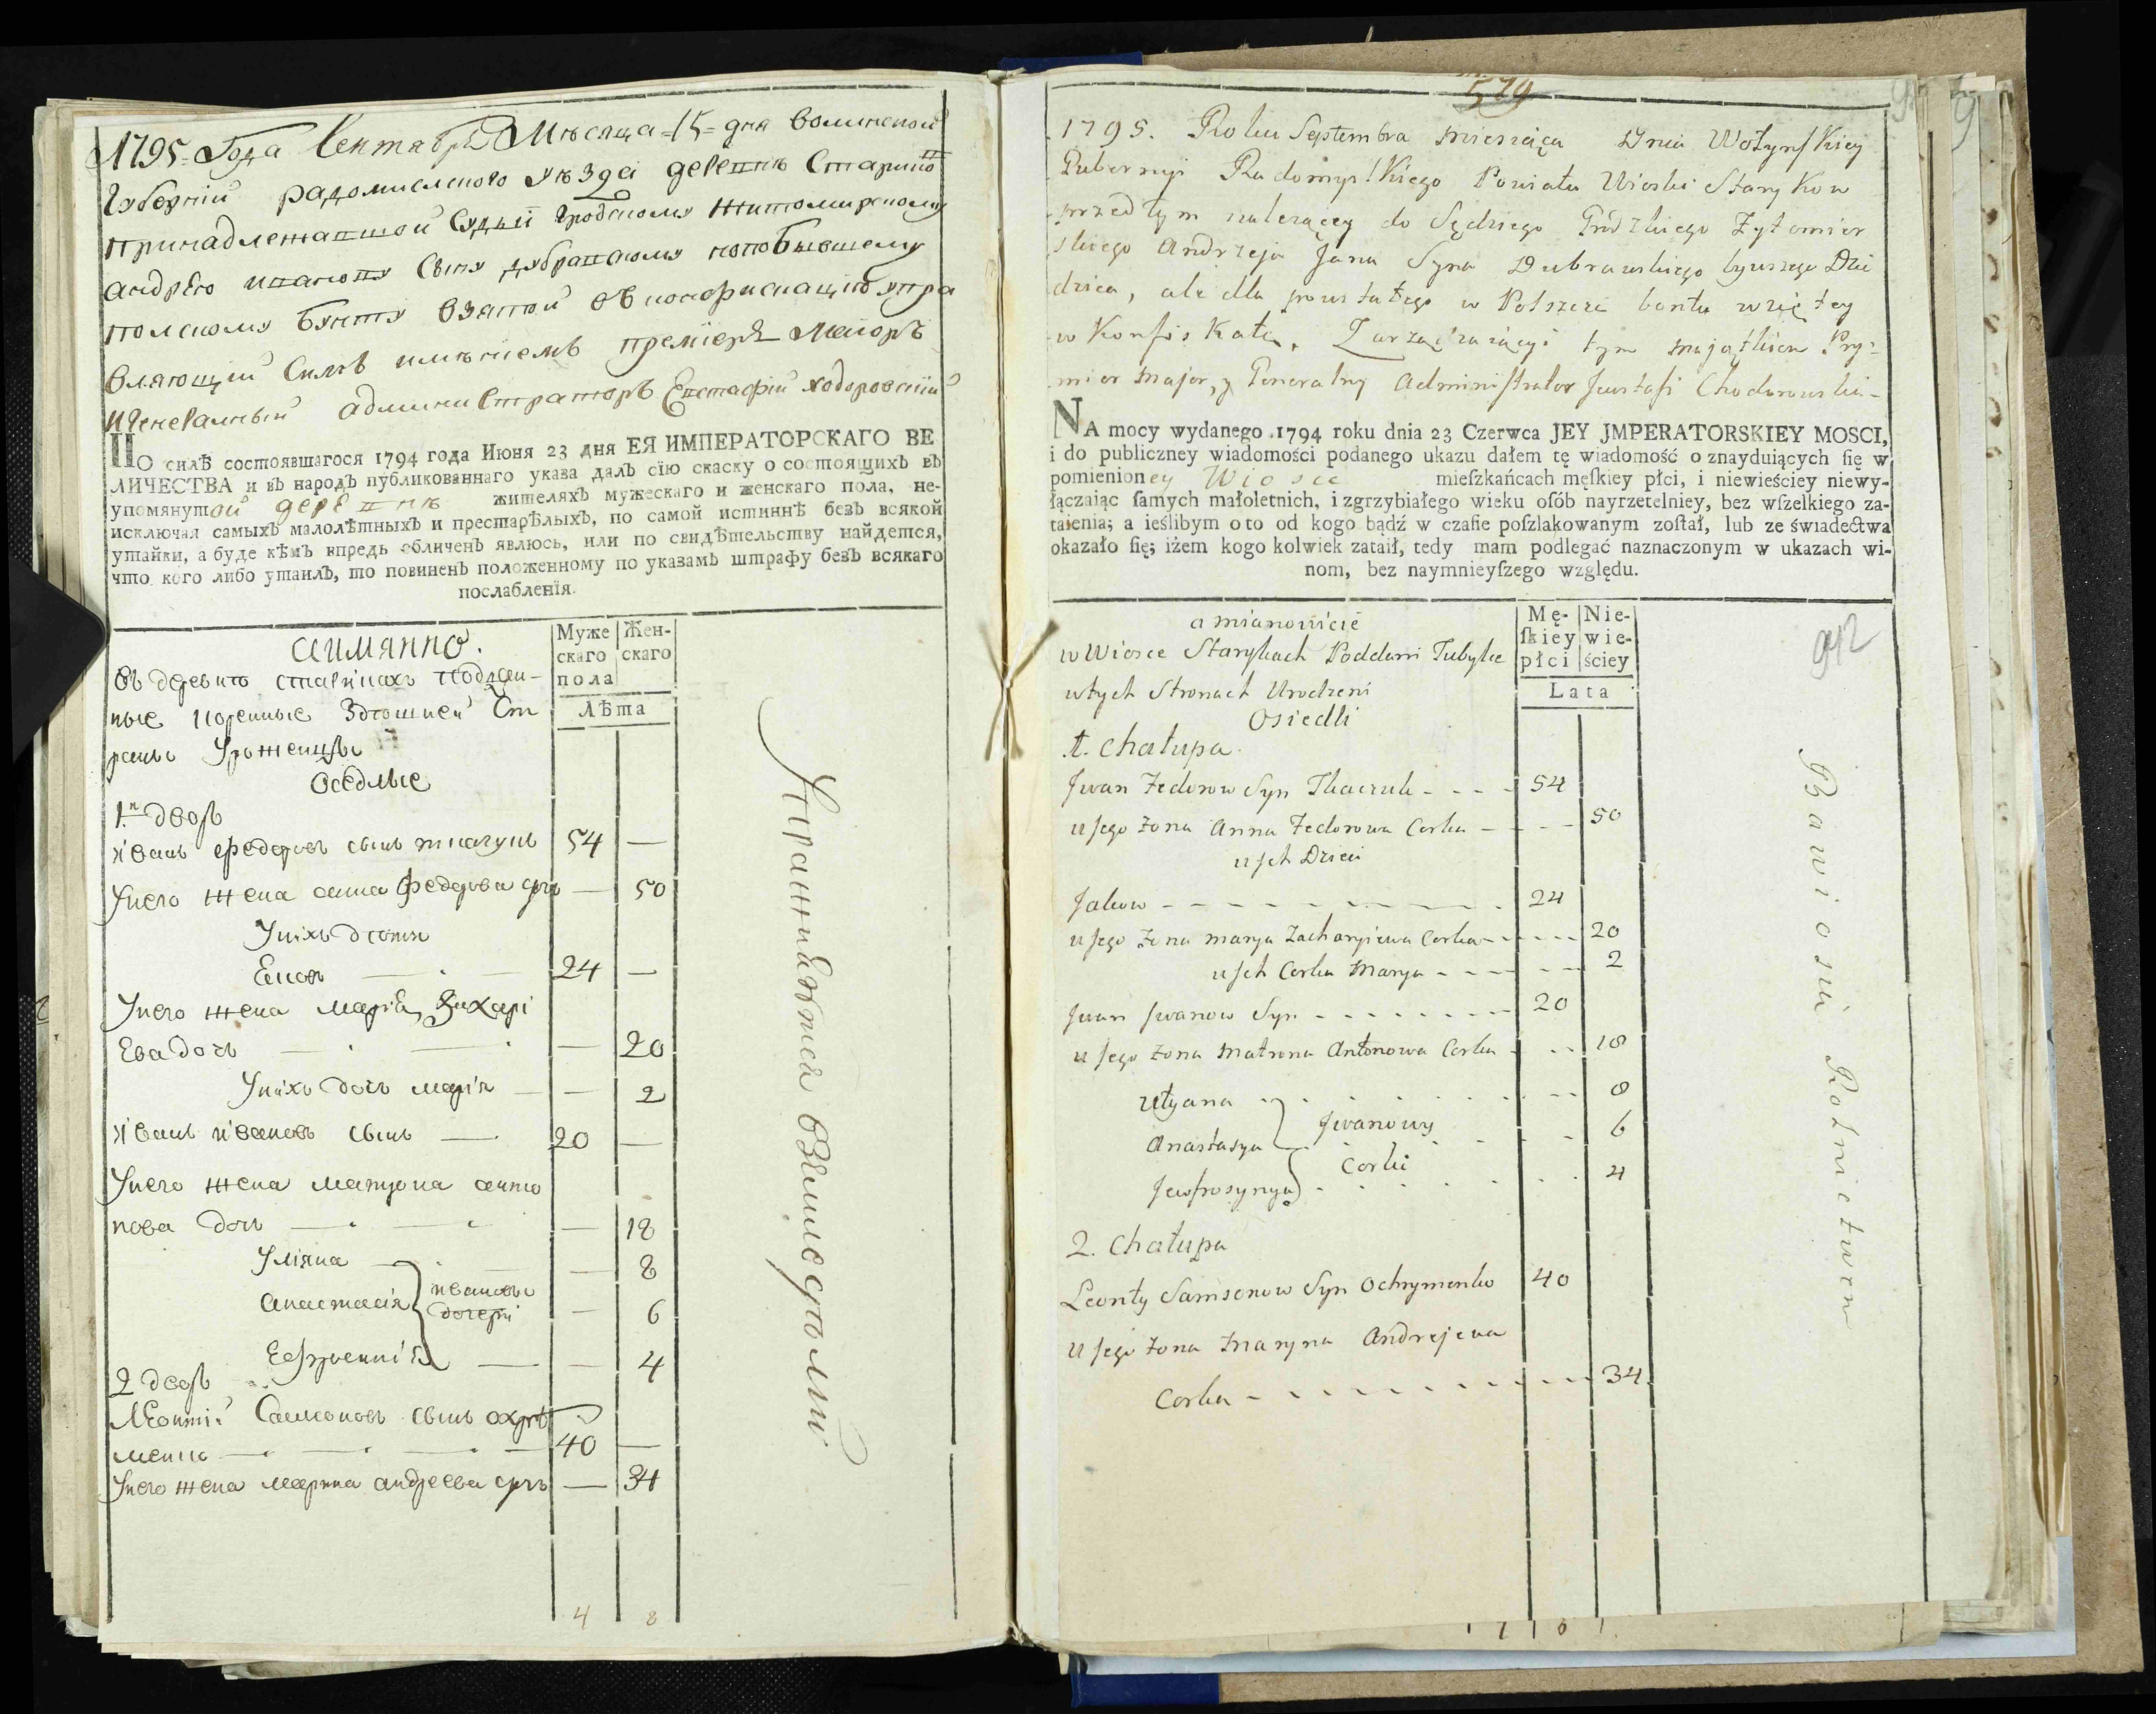 1795 = Года Сентября Мѣсяца = 15 = дня Волинской
Губернїи радомислского уѣзда деревнѣ Старико
принадлежавшой Судьи Гродскому житомирскому
андрею иванову Сыну дубравскому нопобывшему
полскому бунту взятой въ конфискацию упра
вляющїи Симъ имѣнїемъ премїеръ маїоръ
И Генералный администраторъ Евстафїй ходоровскїй
ПО силѣ состоявшагося 1794 года Июня 23 дня ЕЯ ИМПЕРАТОРСКАГО ВЕ
ЛИЧЕСТВА и въ народъ публикованнаго указа далъ сїю скаску о состоящихъ въ
упомянутой деревнѣ жителяхъ мужескаго и женскаго пола, не-
исключая самыхъ малолѣтныхъ и престарѣлыхъ, по самой истиннѣ безъ всякой
утайки, а буде кѣмъ впредь обличенъ явлюсь, или по свидѣтельству найдется,
что кого либо утаилъ, то повиненъ положенному по указамъ штрафу безъ всякаго
послабленїя.
аимянно.
Муже Жен-
скаго скаго
пола
Лѣта
Въ деревнѣ старикахъ поддан-
ные коренные здѣшней Ст
раны Уроженцы
Оседлые
1й дворъ
иванъ федоровъ сынъ ткачукъ 54 —
Унего жена анна федорова дочь — 50
Унихъ дѣти
Еков — 24 —
Унего жена марїя Захарї
Ева дочь — — 20
Унихъ дочь марїя — — 2
иванъ ивановъ сынъ — 20 —
Унего жена матрона анто
нова дочь — — 18
Улїяна — — 8
анастасїя ивановы дочери — 6
Ефросинїя — — 4
2 дворъ
Леонтїй Самсоновъ сынъ охрѣ
менко — 40 —
Унего жена марина андреева дочь — 34
4 8
Упражняются въ земледѣлїи
529
1795. Roku Septembra miesiąca Dnia Wołynſkiey
Gubernyi Radomyſlkiego Powiatu Wioski Starykow
przedtym należącey do Sędziego Grodzkiego Żytomier
skiego Andrzeja Jana Syna Dubrawskiego bywszego Dzie
dzica, ale dla powstałego w Polszcze bontu wziętey
w Konfiskatę. Zarządzaiący tym maiątkiem Pry=
mier Major, y Generalny Adminiſtrator Jewstafi Chodorowski—
NA mocy wydanego 1794 roku dnia 23 Czerwca JEY JMPERATORSKIEY MOSCI,
i do publiczney wiadomości podanego ukazu dałem tę wiadomość o znayduiących ſię w
pomienioney Wiosce mieſzkańcach męſkiey płci, i niewieściey niewy-
łączaiąc ſamych małoletnich, i zgrzybiałego wieku oſób nayrzetelniey, bez wſzelkiego za-
taienia; a ieślibym o to od kogo bądź w czaſie poſzlakowanym zoſtał, lub ze świadectwa
okazało ſię; iżem kogo kolwiek zataił, tedy mam podlegać naznaczonym w ukazach wi-
nom, bez naymnieyſzego względu.
a mianowicie
Mę- Nie-
ſkiey wie-
płci ściey
Lata
w Wiosce Starykach Poddani Tubylce
w tych Stronach Urodzeni
Osiedli
1. Chałupa.
Jwan Fedorow Syn Tkaczuk - - - 54
u Jego Żona Anna Fedorowa Corka - - - 50
u Jch Dzieci
Jakow - - - 24
u Jego Żona Marya Zacharyiewa Corka - - - 20
u Jch Corka Marya - - - 2
Jwan Jwanow Syn - - - 20
u Jego Żona Matrona Antonowa Corka - - - 18
Ulyana - - - 8
Anastasya Jwanowy - - - 6
Jewfrosynya Corki - - - 4
2. Chałupa
Leonty Samsonow Syn Ochrymenko 40
u Jego Żona Maryna Andrejewa
Corka - - - 34
942
Bawio się Rolnictwem